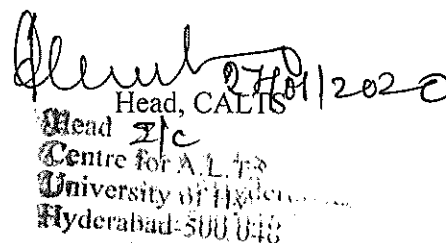 27/01/2020
Head, CALTS
Head I/c
Centre for A.L.T.S
University of Hyderabad
Hyderabad-500 046